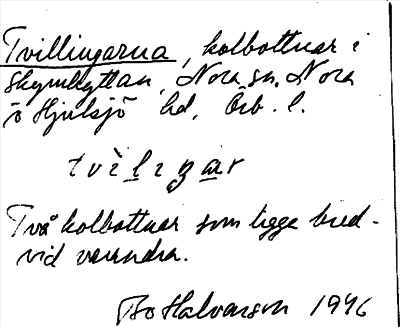 Tvillingarna, kolbottnar i
Skymhyttan, Nora sn, Nora
o Hjulsjö hd, Örb. l.
tvìlıŋar
Två kolbottnar som ligge bred-
vid varandra.
Bo Halvarson 1946